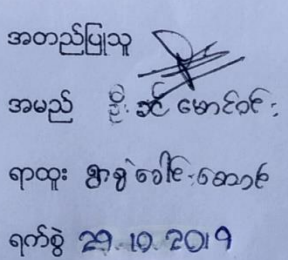 အတည်ပြုသူ
အမည် ဦးခင်မောင်ဝင်း
ရာထူး ရွာခွဲခေါင်းဆောင်
ရက်စွဲ 29.10.2019